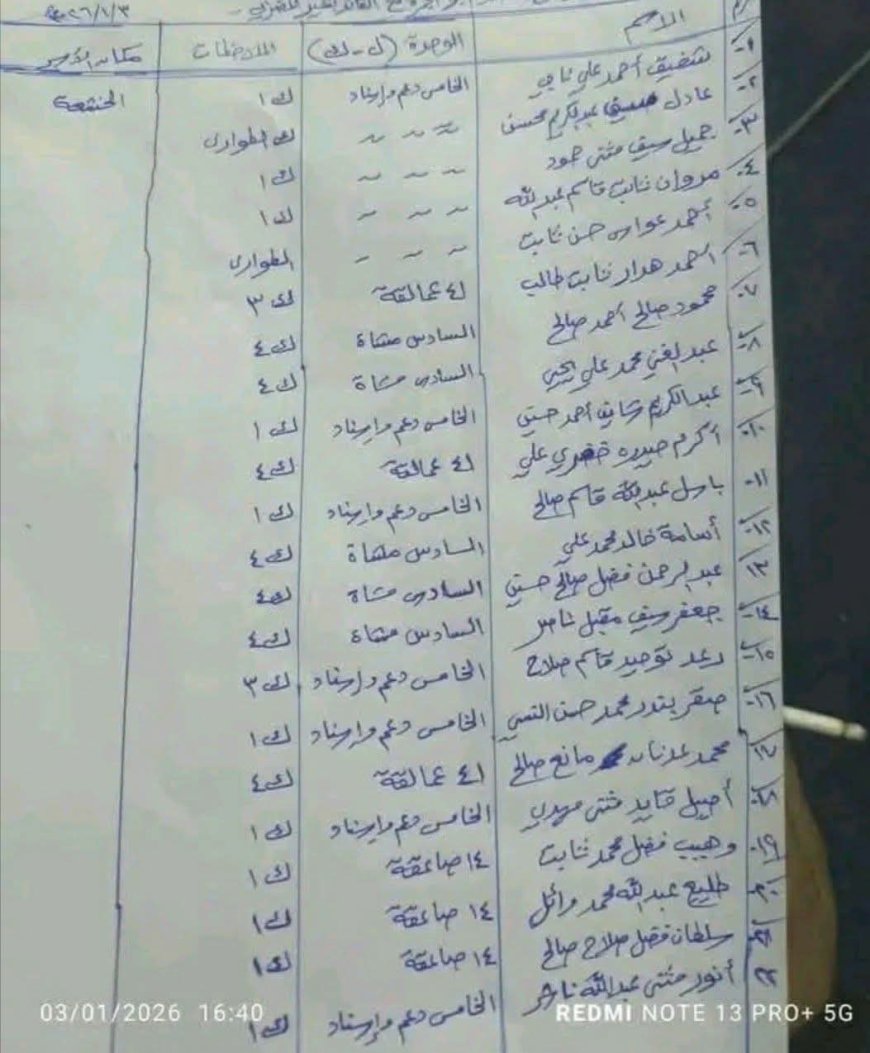 ٢٠٢٦/١/٣
م الاسم الوحدة (ل-ك) الملاحظات مكان الأسر
١- شفيق أحمد علي ناجي الخامس دعم وإسناد ك ١ الخشعة
٢- عادل عبدالكريم محسن ~ ~ ~ ك الطوارئ
٣- جميل سيف مثنى حمود ~ ~ ~ ك ١
٤- مروان ثابت قاسم عبدالله ~ ~ ~ ك ١
٥- أحمد عواس حسن ثابت ~ ~ ~ الطوارئ
٦- أحمد هدار ثابت طالب ٤١ عمالقة ك ٣
٧- محمود صالح أحمد صالح السادس مشاة ك ٤
٨- عبدالغني محمد علي يحيى السادس مشاة ك ٤
٩- عبدالكريم شايف أحمد حسين الخامس دعم وإسناد ك ١
١٠- أكرم علي ٤١ عمالقة ك ٤
١١- باسل عبدالله قاسم صالح الخامس دعم وإسناد ك ١
١٢- أسامة خالد محمد علي السادس مشاة ك ٤
١٣- عبدالرحمن فضل صالح حسين السادس مشاة ك ٤
١٤- جعفر سيف مقبل ناصر السادس مشاة ك ٤
١٥- رعد توحيد قاسم صلاح الخامس دعم وإسناد ك ٣
١٦- صقر بندر محمد حسن الخامس دعم وإسناد ك ١
١٧- محمد عدنان مانع صالح ٤١ عمالقة ك ٤
١٨- أصيل قايد مثنى مهدي الخامس دعم وإسناد ك ١
١٩- وهيب فضل محمد ثابت ١٤ صاعقة ك ١
٢٠- طليع عبدالله محمد وائل ١٤ صاعقة ك ١
٢١- سلطان فضل صلاح صالح ١٤ صاعقة ك ١
٢٢- أنور مثنى عبدالله ناصر الخامس دعم وإسناد ك ١
03/01/2026 16:40
REDMI NOTE 13 PRO+ 5G